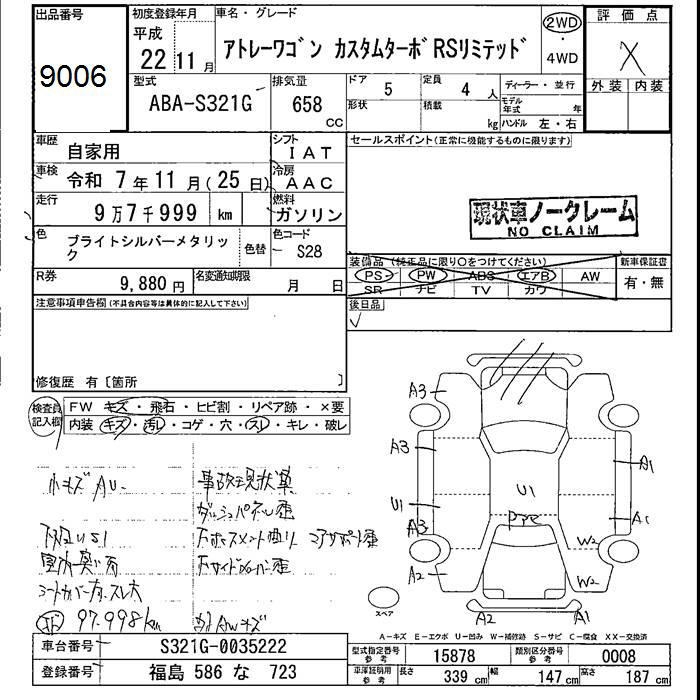 出品番号
9006
初度登録年月
平成
22 11 月
車名・グレード
アトレーワゴン カスタムターボRSリミテッド
2WD
・
4WD
評価点
X
外装 内装
型式
ABA-S321G
排気量
658
CC
ドア
5
定員
4 人
形状
積載
kg
ディーラー・並行
モデル年式 年
ハンドル 左・右
車歴
自家用
シフト
IAT
車検
令和 7年11月(25日)
冷房
AAC
走行
9万7千999 km
燃料
ガソリン
色
ブライトシルバーメタリック
色替
色コード
S28
R券
9,880 円
名変通知期限
月 日
セールスポイント(正常に機能するものに限ります)
現状車ノークレーム
NO CLAIM
装備品(純正品に限り○をつけてください)
PS PW ABS エアB AW
SR ナビ TV カワ
新車保証書
有・無
後日品
注意事項申告欄(不具合内容等は具体的に記入して下さい)
修復歴 有〔箇所 〕
検査員記入欄
FW キズ・飛石・ヒビ割・リペア跡・×要
内装・キズ・汚レ・コゲ・穴・スレ・キレ・破レ
小キズAU-
事故現状車
97.998km
A3
A3
U1
A3
A2
U1
A1
A1
W2
W2
A2
A1
スペア
A-キズ E-エクボ U-凹み W-補修跡 S-サビ C-腐食 XX-交換済
車台番号
S321G-0035222
登録番号
福島 586 な 723
型式指定番号
参考
15878
類別区分番号
参考
0008
車庫証明用
参考
長さ 339 cm 幅 147 cm 高さ 187 cm